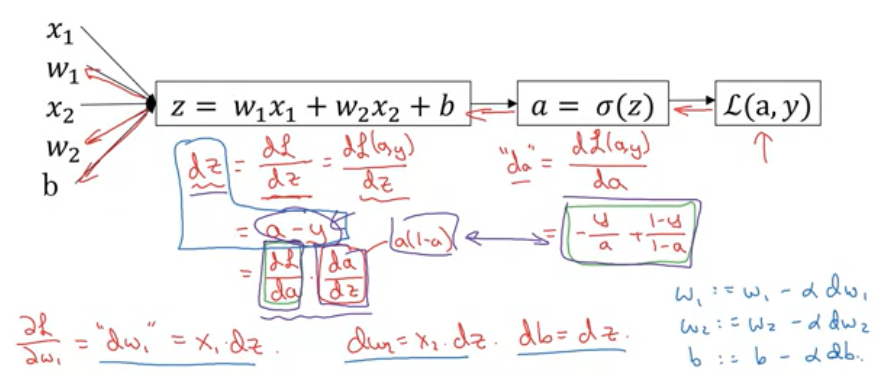 x₁
w₁
x₂
w₂
b
z = w₁x₁ + w₂x₂ + b
a = σ(z)
ℒ(a, y)
dz = dℒ/dz = dℒ(a,y)/dz
"da" = dℒ(a,y)/da
= a - y
a(1-a)
= - y/a + (1-y)/(1-a)
= dℒ/da · da/dz
∂ℒ/∂w₁ = "dw₁" = x₁·dz.
dw₂ = x₂·dz.
db = dz.
w₁ := w₁ - α dw₁
w₂ := w₂ - α dw₂
b := b - α db.